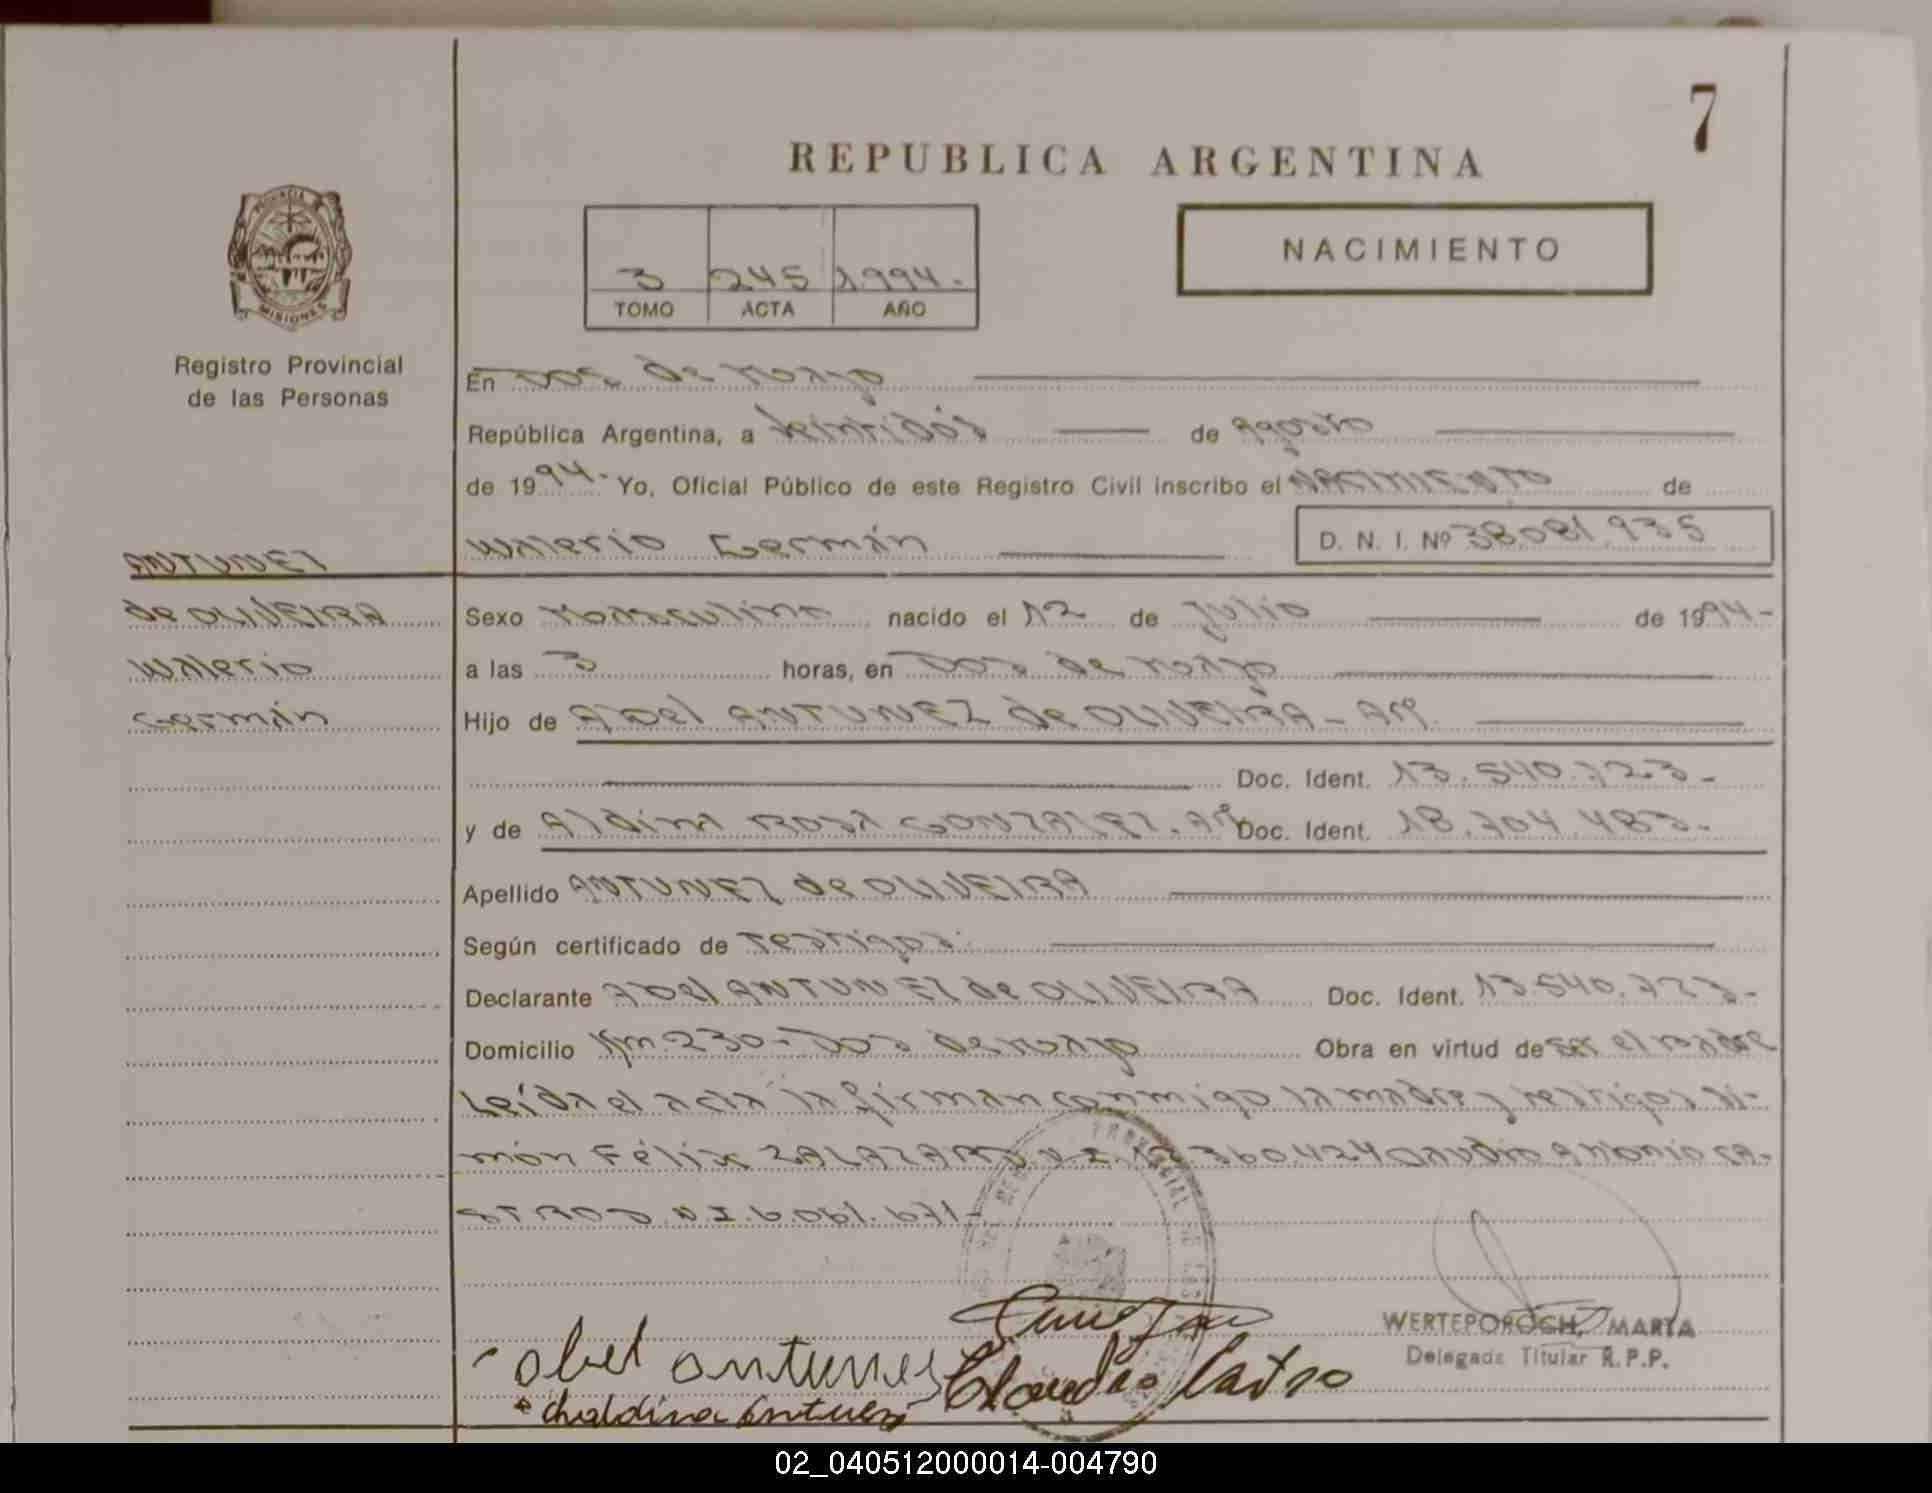 7
REPUBLICA ARGENTINA
PROVINCIA
MISIONES
Registro Provincial
de las Personas
3 245 1994.
TOMO ACTA AÑO
NACIMIENTO
En Dos de Mayo
República Argentina, a veintidós de agosto
de 1994- Yo, Oficial Público de este Registro Civil inscribo el NACIMIENTO de
Walerio Germán D. N. I. Nº 38.081.935
ANTUNEZ
de OLIVEIRA
Walerio
Germán
Sexo Masculino nacido el 12 de Julio de 1994-
a las 3 horas, en Dos de Mayo
Hijo de Abel ANTUNEZ de OLIVEIRA - Arg.
Doc. Ident. 13.540.723-
y de Aldina Rosa GONZALEZ. Arg Doc. Ident. 18.704.483-
Apellido ANTUNEZ de OLIVEIRA
Según certificado de Testigos.
Declarante Abel ANTUNEZ de OLIVEIRA Doc. Ident. 13.540.723-
Domicilio Km 230- Dos de Mayo Obra en virtud de ser el padre
Leída el acta la firman conmigo la madre y testigos Si-
món Félix ZALAZAR D.N.I. Claudio Antonio CA-
STRO D.N.I. 6.061.671-
abel antunes
Claudio Castro
WERTEPOROCH, MARTA
Delegada Titular R.P.P.
02_040512000014-004790